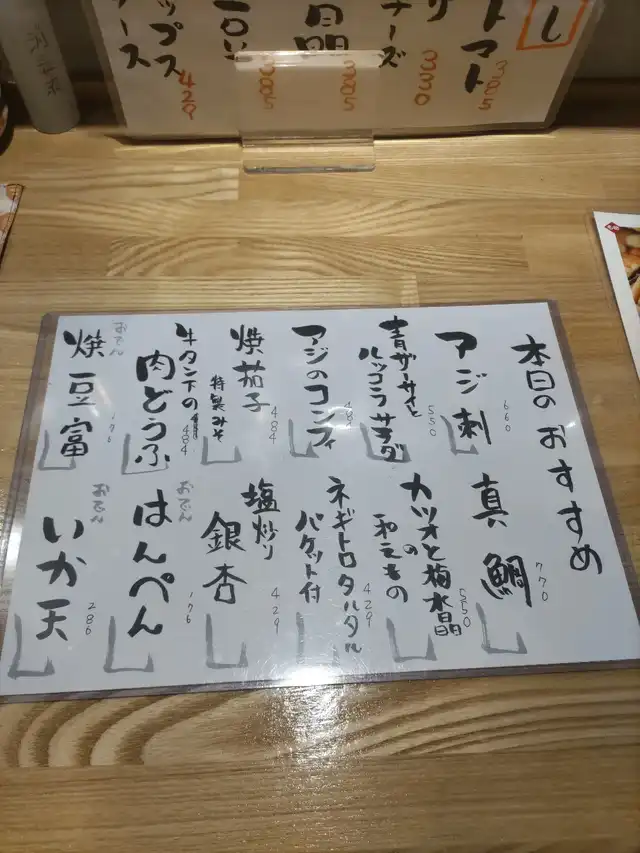 し
トマト
385
330
385
385
429
本日のおすすめ
アジ刺
660
青ザーサイと
ルッコラサラダ
550
アジのコンフィ
484
焼茄子
特製みそ
484
牛タン下の
肉どうふ
484
おでん
焼豆富
176
真鯛
770
カツオと梅水晶
の
和えもの
550
ネギトロタルタル
バケット付
429
塩炒り
銀杏
429
おでん
はんぺん
176
おでん
いか天
286